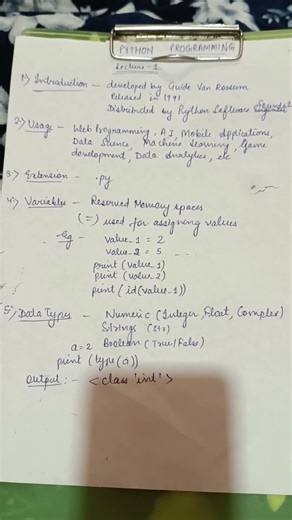 PYTHON PROGRAMMING
Lecture - 1
1) Introduction - developed by Guido Van Rossum
Released in 1991
Distributed by Python Software
2) Usage - Web Programming, AI, Mobile Applications,
Data Science, Machine Learning, Game
development, Data Analytics, etc
3) Extension - .py
4) Variables - Reserved Memory spaces
(=) used for assigning values
eg - value_1 = 2
value_2 = 5 - - -
print (value_1)
print (value_2)
print (id(value_1))
5) Data Types - Numeric (Integer, Float, Complex)
Strings (str)
a=2 Boolean (True/False)
print (type(a))
Output :- <class 'int'>